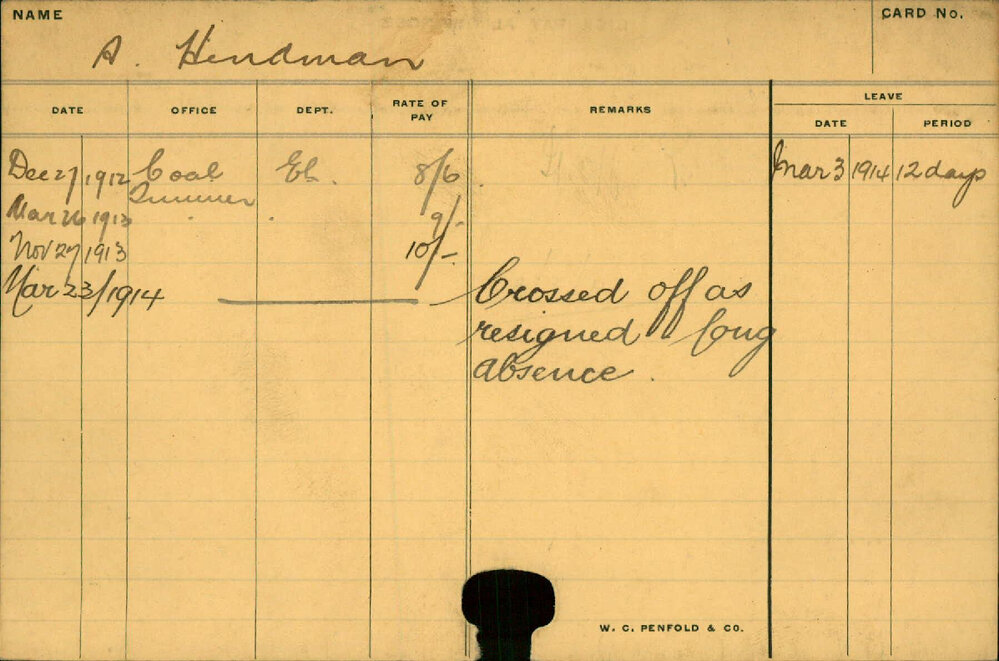 NAME
CARD No.
A. Hindman
DATE
OFFICE
DEPT.
RATE OF PAY
REMARKS
LEAVE
DATE
PERIOD
Dec 27 1912 Coal Trimmer El. 8/6 Mar 3 1914 12 days
Mar 26 1913 " " 9/-
Nov 27 1913 10/-
Mar 23/1914 Crossed off as
resigned long
absence.
W. C. PENFOLD & CO.